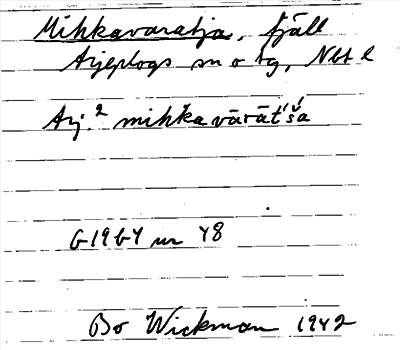 Mihkavaratja, fjäll
Arjeplogs sn o tg, Nbt l
Arj.² mihk̆avārāt́š́a
G1964 nr 48
Bo Wickman 1942